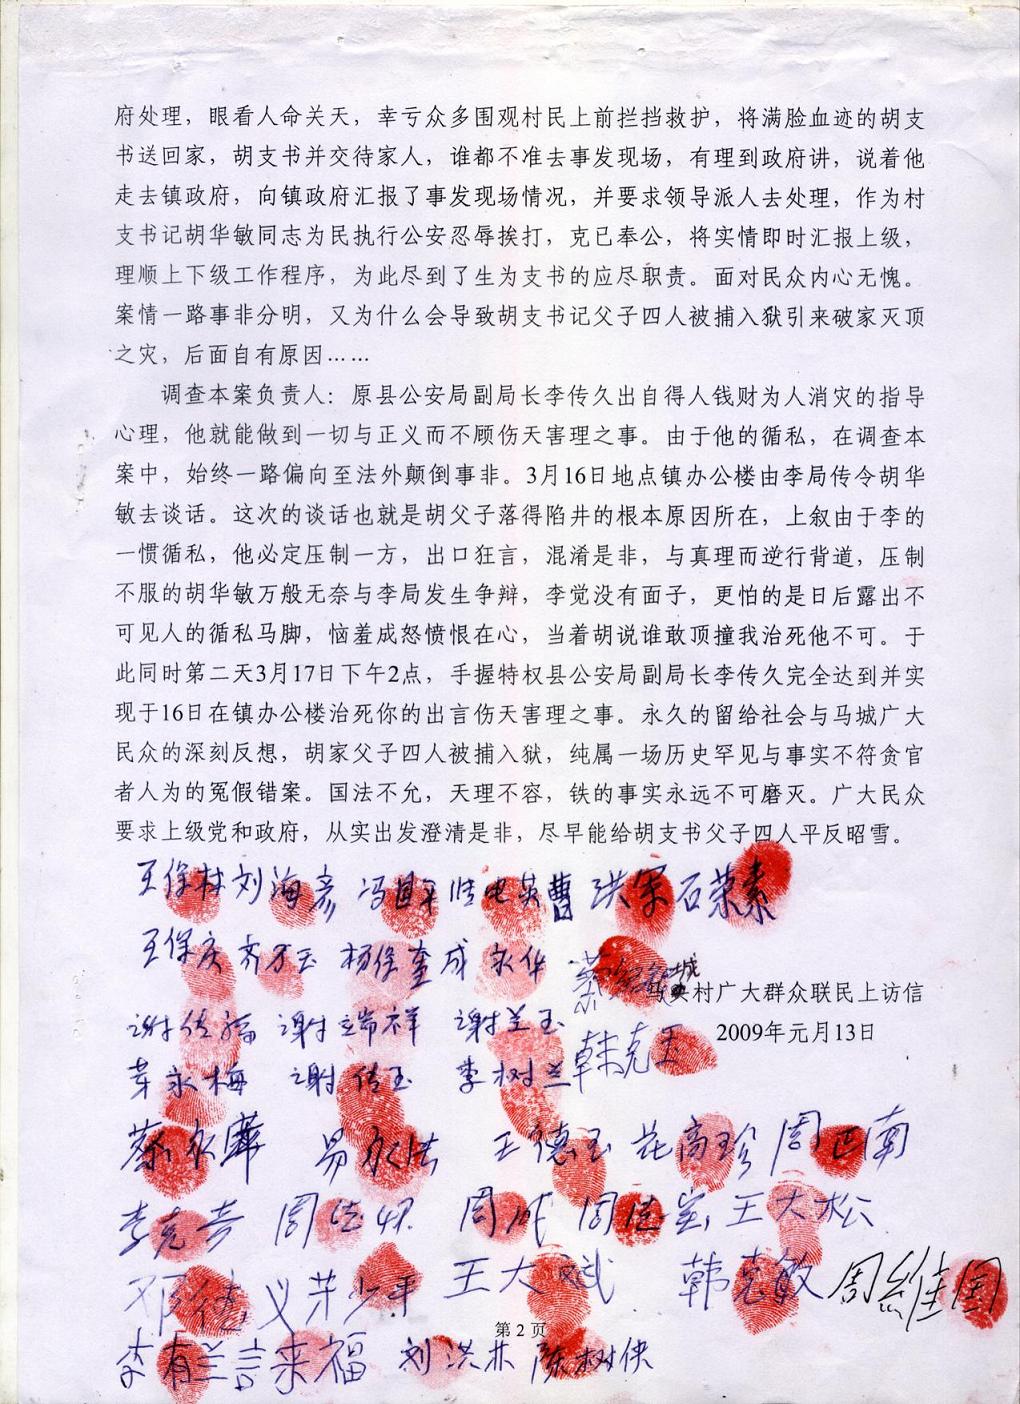 府处理，眼看人命关天，幸亏众多围观村民上前拦挡救护，将满脸血迹的胡支
书送回家，胡支书并交待家人，谁都不准去事发现场，有理到政府讲，说着他
走去镇政府，向镇政府汇报了事发现场情况，并要求领导派人去处理，作为村
支书记胡华敏同志为民执行公安忍辱挨打，克已奉公，将实情即时汇报上级，
理顺上下级工作程序，为此尽到了生为支书的应尽职责。面对民众内心无愧。
案情一路事非分明，又为什么会导致胡支书记父子四人被捕入狱引来破家灭顶
之灾，后面自有原因……
调查本案负责人：原县公安局副局长李传久出自得人钱财为人消灾的指导
心理，他就能做到一切与正义而不顾伤天害理之事。由于他的循私，在调查本
案中，始终一路偏向至法外颠倒事非。3月16日地点镇办公楼由李局传令胡华
敏去谈话。这次的谈话也就是胡父子落得陷井的根本原因所在，上叙由于李的
一惯循私，他必定压制一方，出口狂言，混淆是非，与真理而逆行背道，压制
不服的胡华敏万般无奈与李局发生争辩，李觉没有面子，更怕的是日后露出不
可见人的循私马脚，恼羞成怒愤恨在心，当着胡说谁敢顶撞我治死他不可。于
此同时第二天3月17日下午2点，手握特权县公安局副局长李传久完全达到并实
现于16日在镇办公楼治死你的出言伤天害理之事。永久的留给社会与马城广大
民众的深刻反想，胡家父子四人被捕入狱，纯属一场历史罕见与事实不符贪官
者人为的冤假错案。国法不允，天理不容，铁的事实永远不可磨灭。广大民众
要求上级党和政府，从实出发澄清是非，尽早能给胡支书父子四人平反昭雪。
王保林 刘海彦 洪军 石荣素
王保庆 齐万玉 杨保奎 成永华
城
村广大群众联民上访信
谢传福 谢端祥 谢兰玉
2009年元月13日
韩克玉
芽永梅 谢传玉 李树兰
蔡永華 易永洁 王德玉 花高珍 周巴南
李克芳 周 周成 周德 王大松
邓德义 芽少年 王大斌 韩克敏 周維国
第 2 页
李有兰 訾来福 刘洪林 陈树侠